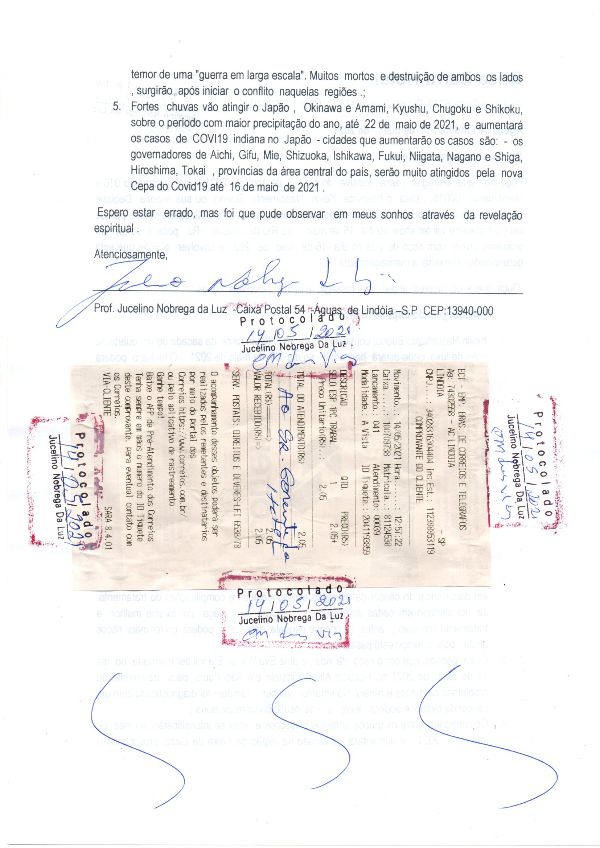 temor de uma "guerra em larga escala". Muitos mortos e destruição de ambos os lados
, surgirão após iniciar o conflito naquelas regiões .;
5. Fortes chuvas vão atingir o Japão , Okinawa e Amami, Kyushu, Chugoku e Shikoku,
sobre o período com maior precipitação do ano, até 22 de maio de 2021, e aumentará
os casos de COVI19 indiana no Japão - cidades que aumentarão os casos são: - os
governadores de Aichi, Gifu, Mie, Shizuoka, Ishikawa, Fukui, Niigata, Nagano e Shiga,
Hiroshima, Tokai , províncias da área central do país, serão muito atingidos pela nova
Cepa do Covid19 até 16 de maio de 2021 .
Espero estar errado, mas foi que pude observar em meus sonhos através da revelação
espiritual .
Atenciosamente,
Prof. Jucelino Nobrega da Luz -Caixa Postal 54 -Aguas de Lindóia –S.P CEP:13940-000
Protocolado
14/05/2021
Jucelino Nobrega Da Luz
Protocolado
14/05/2021
Jucelino Nobrega Da Luz
ECT - EMP. BRAS. DE CORREIOS E TELEGRAFOS
Ag: 74302558 - AC LINDOIA
LINDOIA - SP
COMPROVANTE DO CLIENTE
Movimento.: 14/05/2021 Hora.....: 12:57:22
Lancamento: 041 Atendimento: 00039
Modalidade: A Vista
DESCRICAO QTD. PRECO(R$)
SELO ESP 1PC TRABAL 1 2,05
Preco Unitario(R$): 2,05
TOTAL DO ATENDIMENTO(R$) 2,05
TOTAL(R$)=====> 2,05
VALOR RECEBIDO(R$)=> 2,05
Ao Sr.
SERV. POSTAIS: DIREITOS E DEVERES-LEI 6538/78
O acompanhamento desses objetos poderá ser
realizados pelos remetentes e destinatários
por meio do Portal dos
Correios https://www.correios.com.br/
ou pelo aplicativo de rastreamento
Ganhe tempo!
Baixe o APP de Pre-Atendimento dos Correios
Tenha sempre em mãos o numero do ID Tiquete
deste comprovante, para eventual contato com
os Correios.
VIA-CLIENTE SARA 8.4.01
Protocolado
14/05/2021
Jucelino Nobrega Da Luz
Protocolado
14/05/2021
Jucelino Nobrega Da Luz